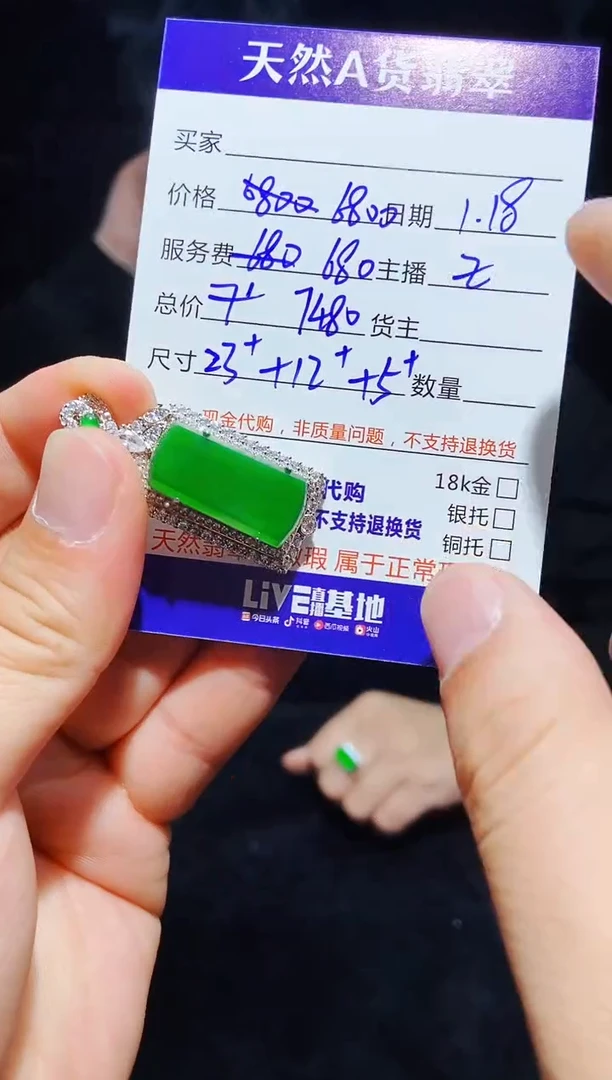 天然A货翡翠
买家
价格 6800 6800 日期 1.18
服务费 680 680 主播
总价 7480 货主
尺寸 23+ +12+ +5+ 数量
现金代购，非质量问题，不支持退换货
18k金
代购
银托
不支持退换货
铜托
天然翡 瑕 属于正常
LiVE直播基地
今日头条 抖音 西瓜视频 火山